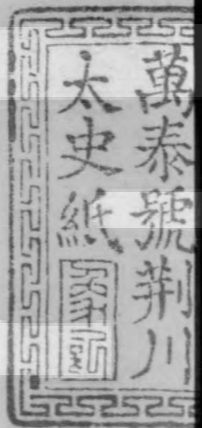 萬泰號荆川
太史紙